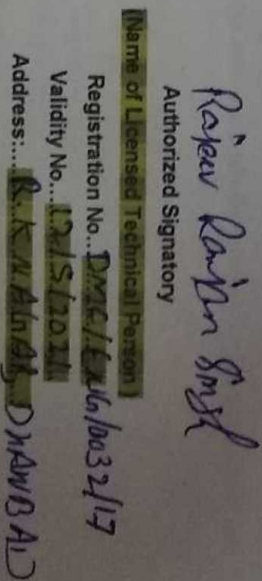 Rajeev Ranjan Singh
Authorized Signatory
(Name of Licensed Technical Person)
Registration No...DMC/ENG/0032/17
Validity No...12/5/2021
Address:... R.K NAGAR, DHANBAD